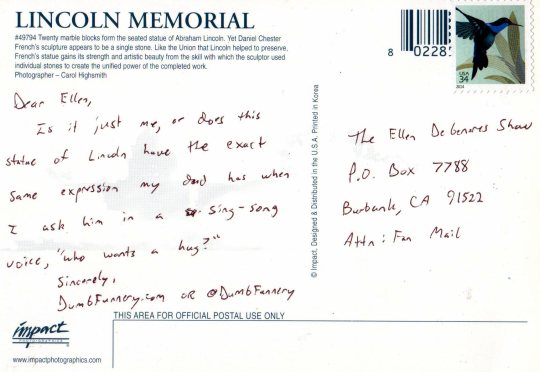 LINCOLN MEMORIAL
#49794 Twenty marble blocks form the seated statue of Abraham Lincoln. Yet Daniel Chester
French's sculpture appears to be a single stone. Like the Union that Lincoln helped to preserve,
French's statue gains its strength and artistic beauty from the skill with which the sculptor used
individual stones to create the unified power of the completed work.
Photographer – Carol Highsmith
Dear Ellen,
Is it just me, or does this
statue of Lincoln have the exact
same expression my dad has when
I ask him in a sing-song
voice, "who wants a hug?"
Sincerely,
DumbFunnery.com OR @DumbFunnery
© Impact, Designed & Distributed in the U.S.A. Printed in Korea
8 0228
USA
34
The Ellen DeGeneres Show
P.O. Box 7788
Burbank, CA 91522
Attn: Fan Mail
THIS AREA FOR OFFICIAL POSTAL USE ONLY
impact
www.impactphotographics.com